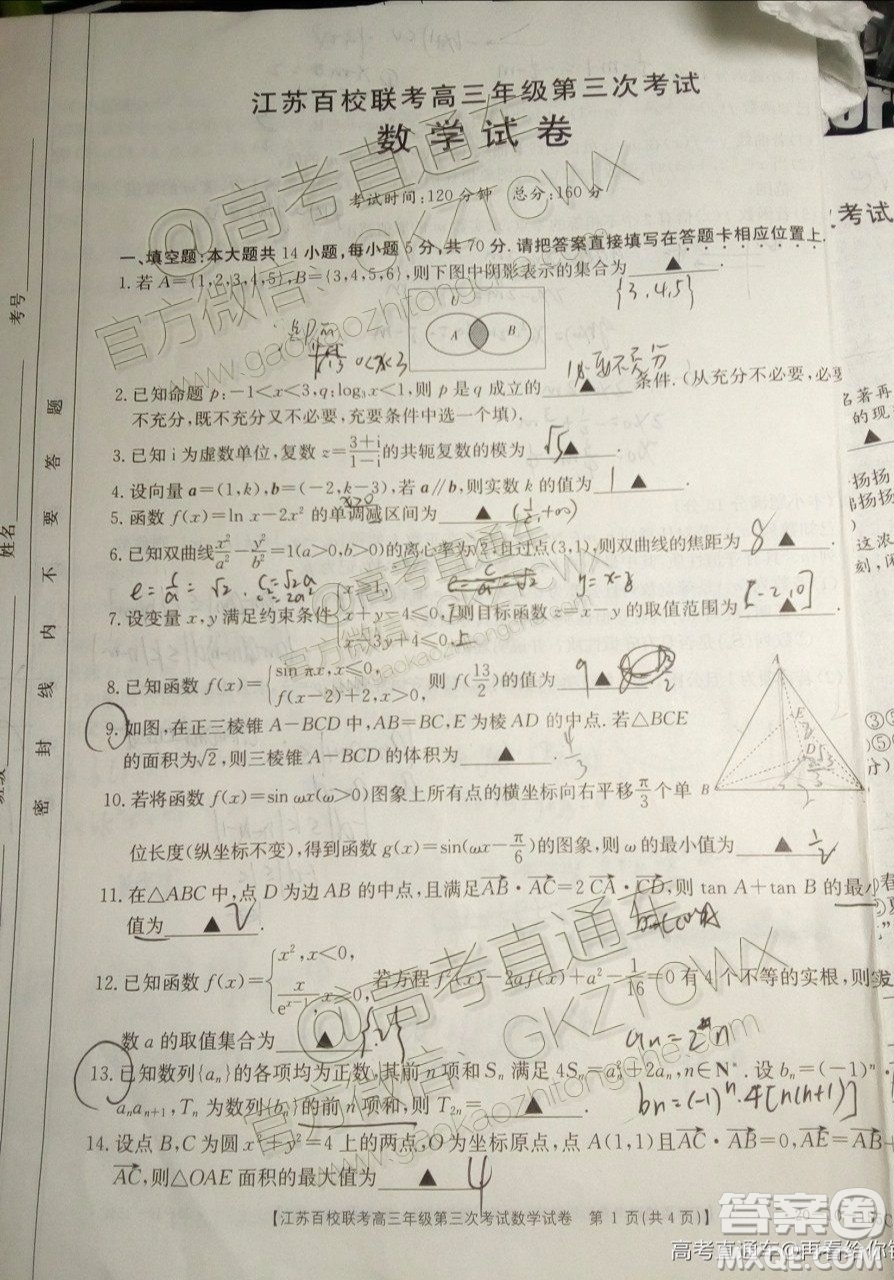 江苏百校联考高三年级第三次考试
数学试卷
考试时间:120分钟 总分:160分
一、填空题:本大题共14小题,每小题5分,共70分.请把答案直接填写在答题卡相应位置上.
1.若A={1,2,3,4,5},B={3,4,5,6},则下图中阴影表示的集合为 ▲
{3,4,5}
U
A
B
0<x<3
2.已知命题p:-1<x<3,q:log₃x<1,则p是q成立的 ▲ 条件.(从充分不必要,必要
不充分,既不充分又不必要,充要条件中选一个填).
3.已知i为虚数单位,复数z=(3+i)/(1-i)的共轭复数的模为 √5 ▲ .
4.设向量a=(1,k),b=(-2,k-3),若a∥b,则实数k的值为 1 ▲ .
x>0
5.函数f(x)=ln x-2x²的单调减区间为 ▲ (1/2,+∞)
6.已知双曲线x²/a²-y²/b²=1(a>0,b>0)的离心率为√2,且过点(3,1),则双曲线的焦距为 8 ▲ .
e=c/a=√2. c=√2a
c²=2a²
y=x-z
7.设变量x,y满足约束条件{x≥1, x+y-4≤0, x-3y+4≤0, 则目标函数z=x-y的取值范围为 [-2,0] ▲ .
8.已知函数f(x)={sin πx,x≤0, f(x-2)+2,x>0, 则f(13/2)的值为 9 ▲
9.如图,在正三棱锥A-BCD中,AB=BC,E为棱AD的中点.若△BCE
的面积为√2,则三棱锥A-BCD的体积为 ▲ . 4/3
A
E
B
D
10.若将函数f(x)=sin ωx(ω>0)图象上所有点的横坐标向右平移π/3个单
位长度(纵坐标不变),得到函数g(x)=sin(ωx-π/6)的图象,则ω的最小值为 ▲ 1/2
11.在△ABC中,点D为边AB的中点,且满足AB·AC=2CA·CD,则tan A+tan B的最小
值为 ▲ 2 .
12.已知函数f(x)={x²,x<0, x/e^(x-1),x≥0, 若方程f²(x)-2af(x)+a²-1/16=0有4个不等的实根,则实
数a的取值集合为 ▲
aₙ=2n
13.已知数列{aₙ}的各项均为正数,其前n项和Sₙ满足4Sₙ=aₙ²+2aₙ,n∈N*.设bₙ=(-1)ⁿ·
aₙaₙ₊₁,Tₙ为数列{bₙ}的前n项和,则T₂ₙ= ▲ .
bₙ=(-1)ⁿ·4[n(n+1)]
14.设点B,C为圆x²+y²=4上的两点,O为坐标原点,点A(1,1)且AC·AB=0,AE=AB+
AC,则△OAE面积的最大值为 ▲ 4
【江苏百校联考高三年级第三次考试数学试卷 第1页(共4页)】
考号
姓名
班级
密封线内不要答题
考试
名著再
的现
扬扬
扬扬
这浓
@高考直通车
官方微信:GKZTCWX
www.gaokaozhitongche.com
高考直通车@再看给你
答案圈
MXQE.COM